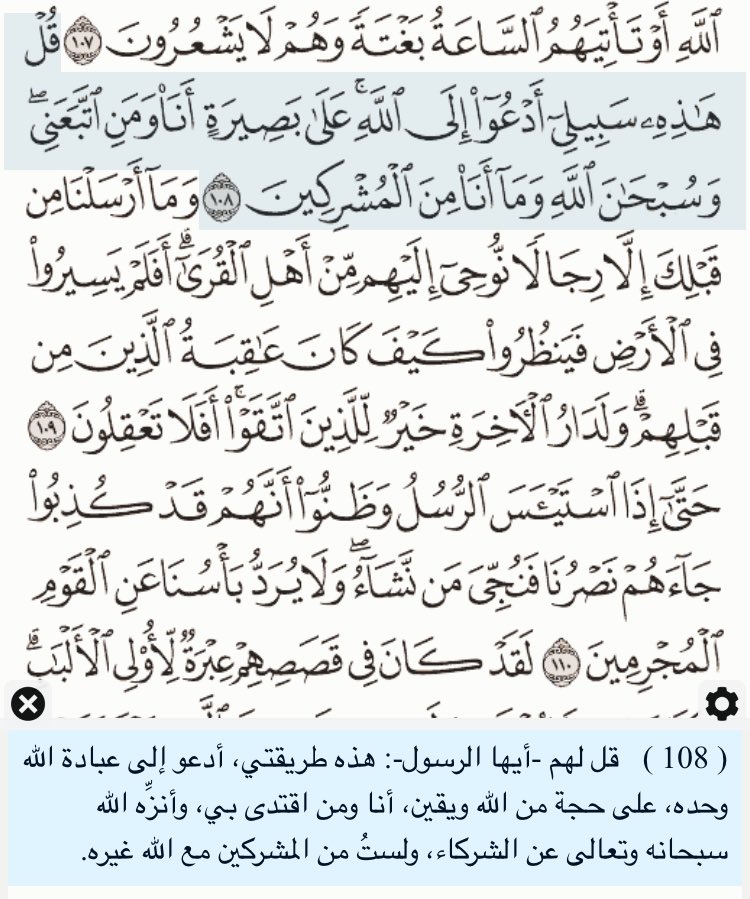 ٱللَّهِ أَوۡ تَأۡتِيَهُمُ ٱلسَّاعَةُ بَغۡتَةٗ وَهُمۡ لَا يَشۡعُرُونَ ١٠٧ قُلۡ
هَٰذِهِۦ سَبِيلِيٓ أَدۡعُوٓاْ إِلَى ٱللَّهِۚ عَلَىٰ بَصِيرَةٍ أَنَا۠ وَمَنِ ٱتَّبَعَنِيۖ
وَسُبۡحَٰنَ ٱللَّهِ وَمَآ أَنَا۠ مِنَ ٱلۡمُشۡرِكِينَ ١٠٨ وَمَآ أَرۡسَلۡنَا مِن
قَبۡلِكَ إِلَّا رِجَالٗا نُّوحِيٓ إِلَيۡهِم مِّنۡ أَهۡلِ ٱلۡقُرَىٰٓۗ أَفَلَمۡ يَسِيرُواْ
فِي ٱلۡأَرۡضِ فَيَنظُرُواْ كَيۡفَ كَانَ عَٰقِبَةُ ٱلَّذِينَ مِن
قَبۡلِهِمۡۗ وَلَدَارُ ٱلۡأٓخِرَةِ خَيۡرٞ لِّلَّذِينَ ٱتَّقَوۡاْۚ أَفَلَا تَعۡقِلُونَ ١٠٩
حَتَّىٰٓ إِذَا ٱسۡتَيۡـَٔسَ ٱلرُّسُلُ وَظَنُّوٓاْ أَنَّهُمۡ قَدۡ كُذِبُواْ
جَآءَهُمۡ نَصۡرُنَا فَنُجِّيَ مَن نَّشَآءُۖ وَلَا يُرَدُّ بَأۡسُنَا عَنِ ٱلۡقَوۡمِ
ٱلۡمُجۡرِمِينَ ١١٠ لَقَدۡ كَانَ فِي قَصَصِهِمۡ عِبۡرَةٞ لِّأُوْلِي ٱلۡأَلۡبَٰبِۗ
( 108 ) قل لهم -أيها الرسول-: هذه طريقتي، أدعو إلى عبادة الله
وحده، على حجة من الله ويقين، أنا ومن اقتدى بي، وأنزِّه الله
سبحانه وتعالى عن الشركاء، ولستُ من المشركين مع الله غيره.